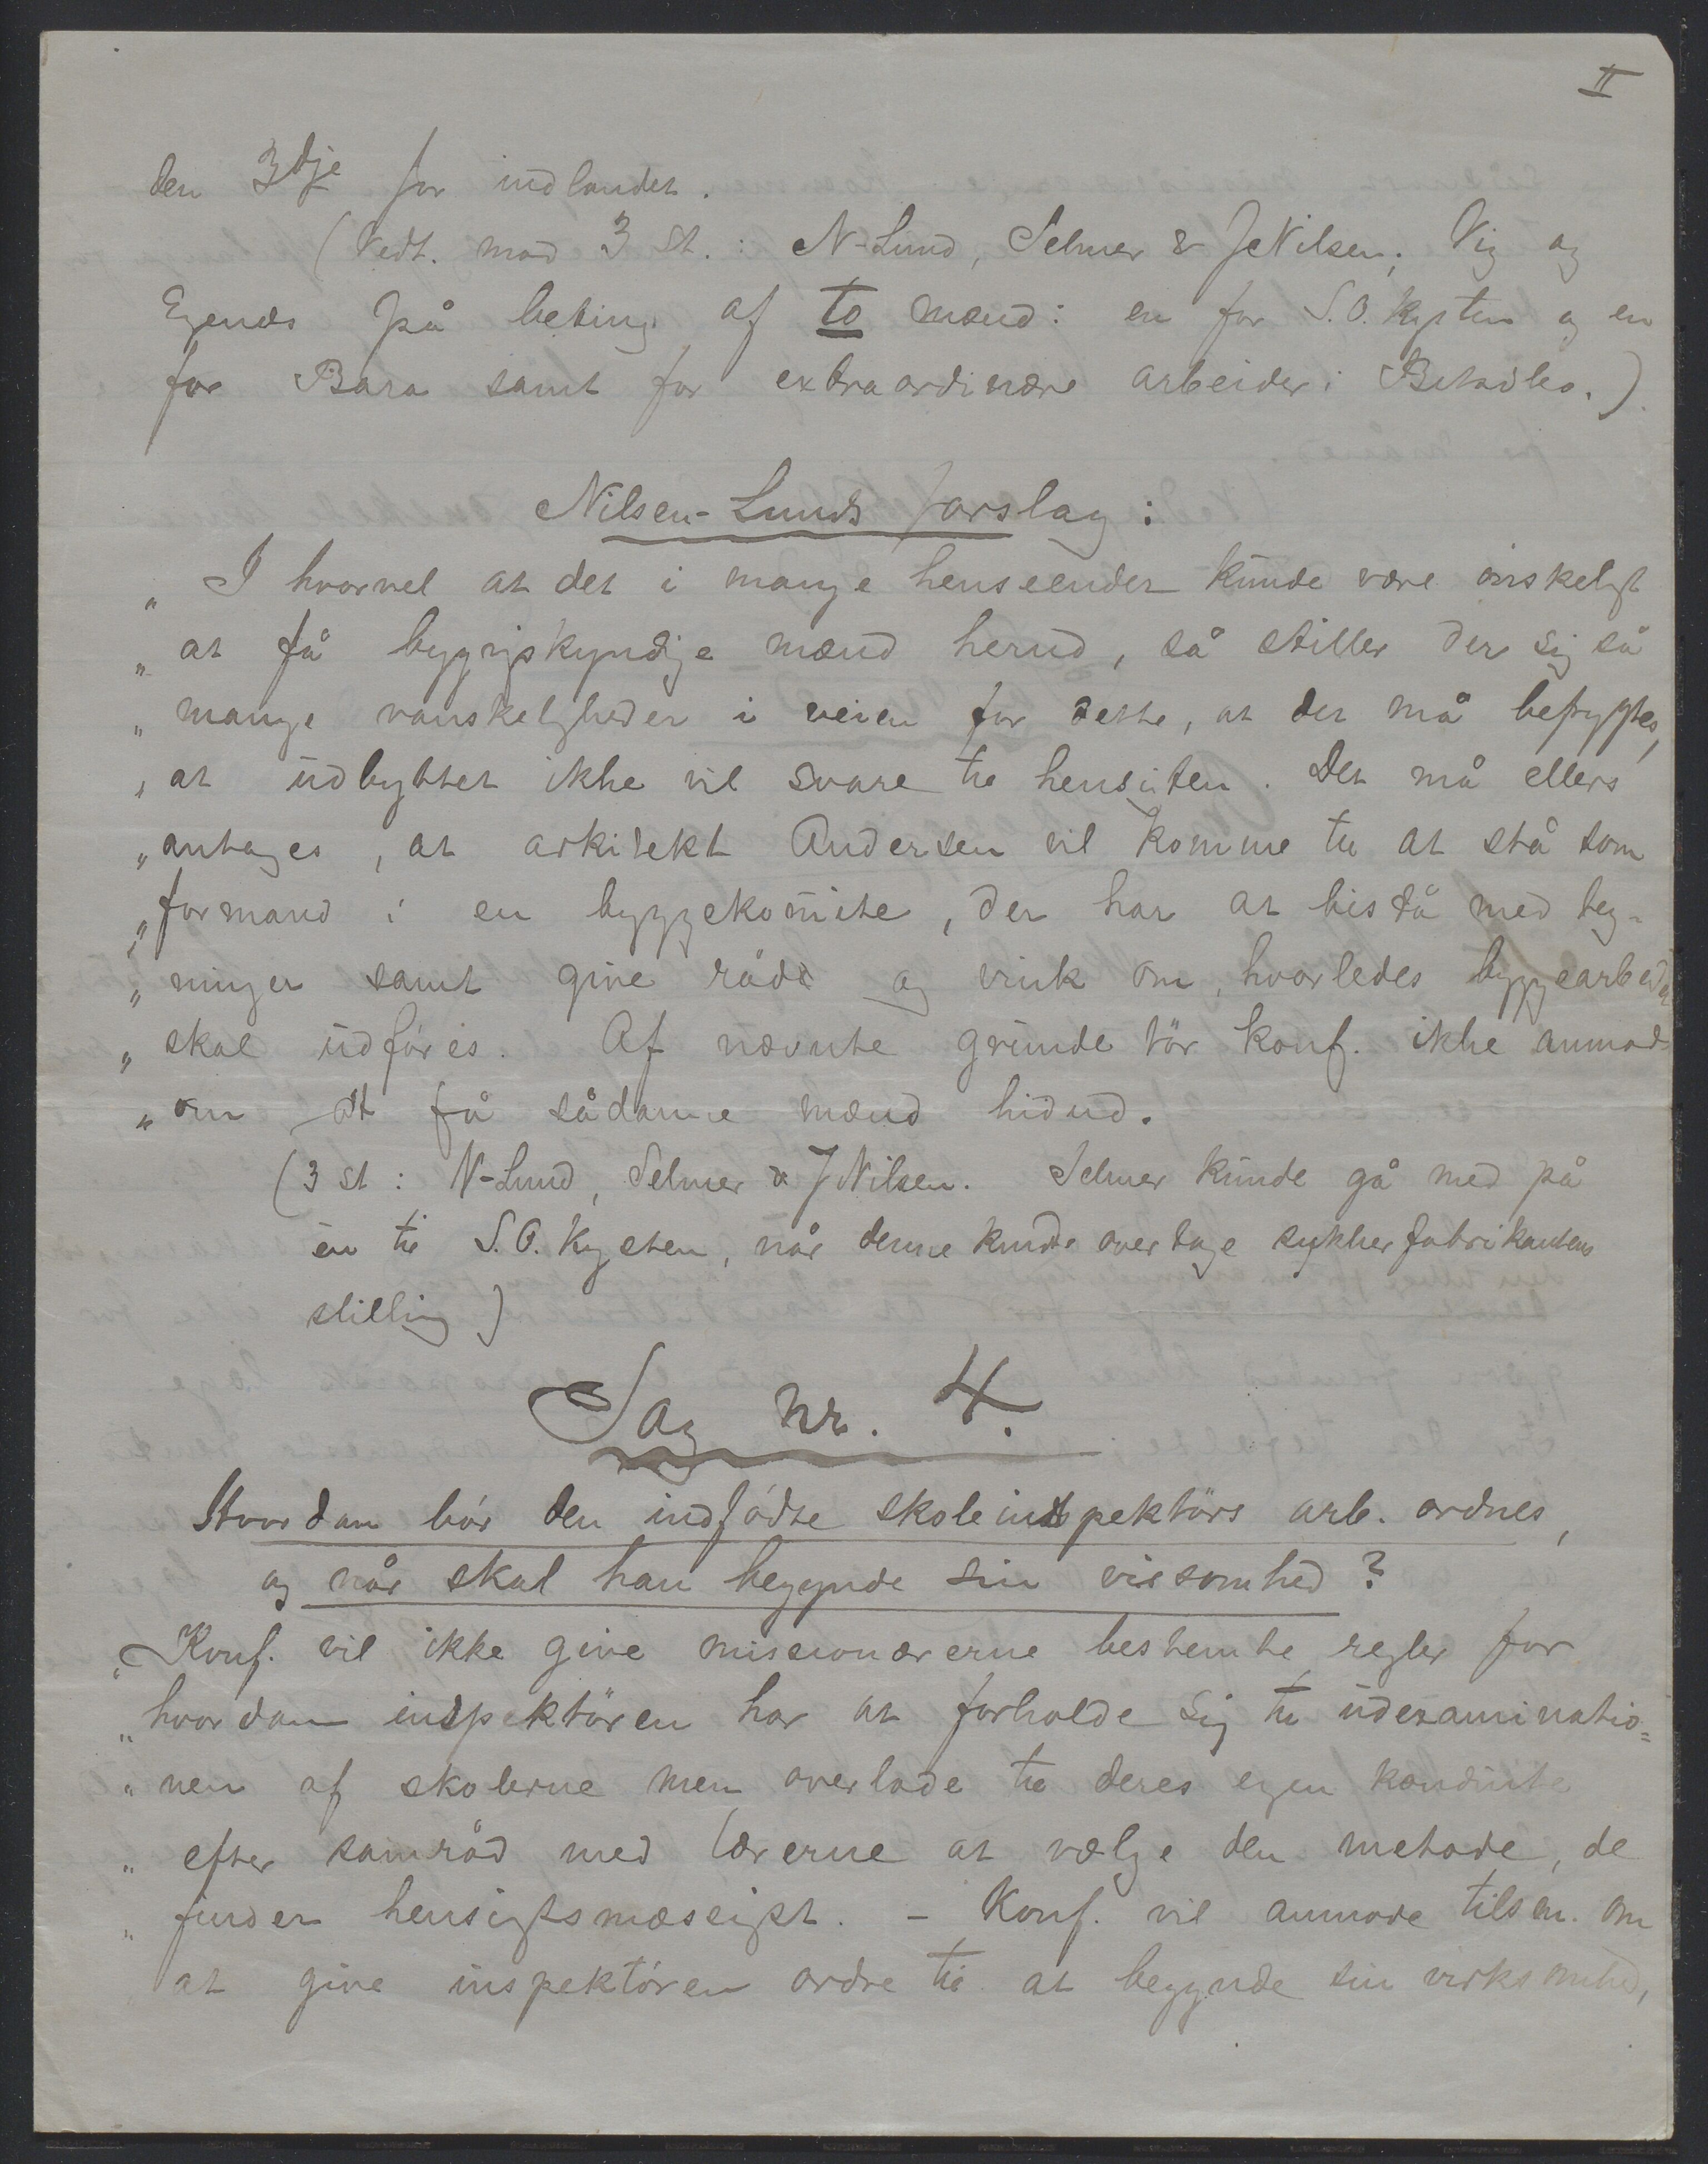 II
den 3dje for indlandet.
(Vedt. mod 3 st.: N-Lund, Selmer & J Nilsen; Vig og
Egenæs på beting. af to mænd: en for S.O. kysten og en
for Bara samt for extraordinære arbeider i Betsileo.)
Nilsen-Lunds forslag:
„ I hvorvel at det i mange henseender kunde være ønskeligt
„ at få bygningskyndige mænd herud, så stiller der sig så
„ mange vanskeligheder i veien for dette, at det må befrygtes,
„ at udbyttet ikke vil svare til hensigten. Det må ellers
„ antages, at arkitekt Andersen vil komme til at stå som
„ formand i en byggekomite, der har at bistå med teg-
„ ninger samt give råd og vink om, hvorledes byggearbeider
„ skal udføres. Af nævnte grunde tör konf. ikke anmode
„ om at få sådanne mænd hidud.
(3 st: N-Lund, Selmer & J Nilsen. Selmer kunde gå med på
én til S.O. Kysten, når denne kunde overtage sukkerfabrikantens
stilling)
Sag nr. 4.
Hvordan bör den indfödte skoleinspektörs arb. ordnes,
og når skal han begynde sin virsomhed?
„ Konf. vil ikke give missionærerne bestemte regler for
„ hvordan inspektören har at forholde sig til udexaminatio=
„ nen af skolerne men overlade til deres egen
„ efter samråd med lærerne at vælge den metode, de
„ finder hensigtsmæssigst. – Konf. vil anmode tilsm. om
at give inspektören ordre til at begynde sin virksomhed,